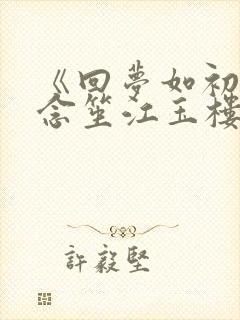 《回夢如初
念笙江玉樓
許毅堅